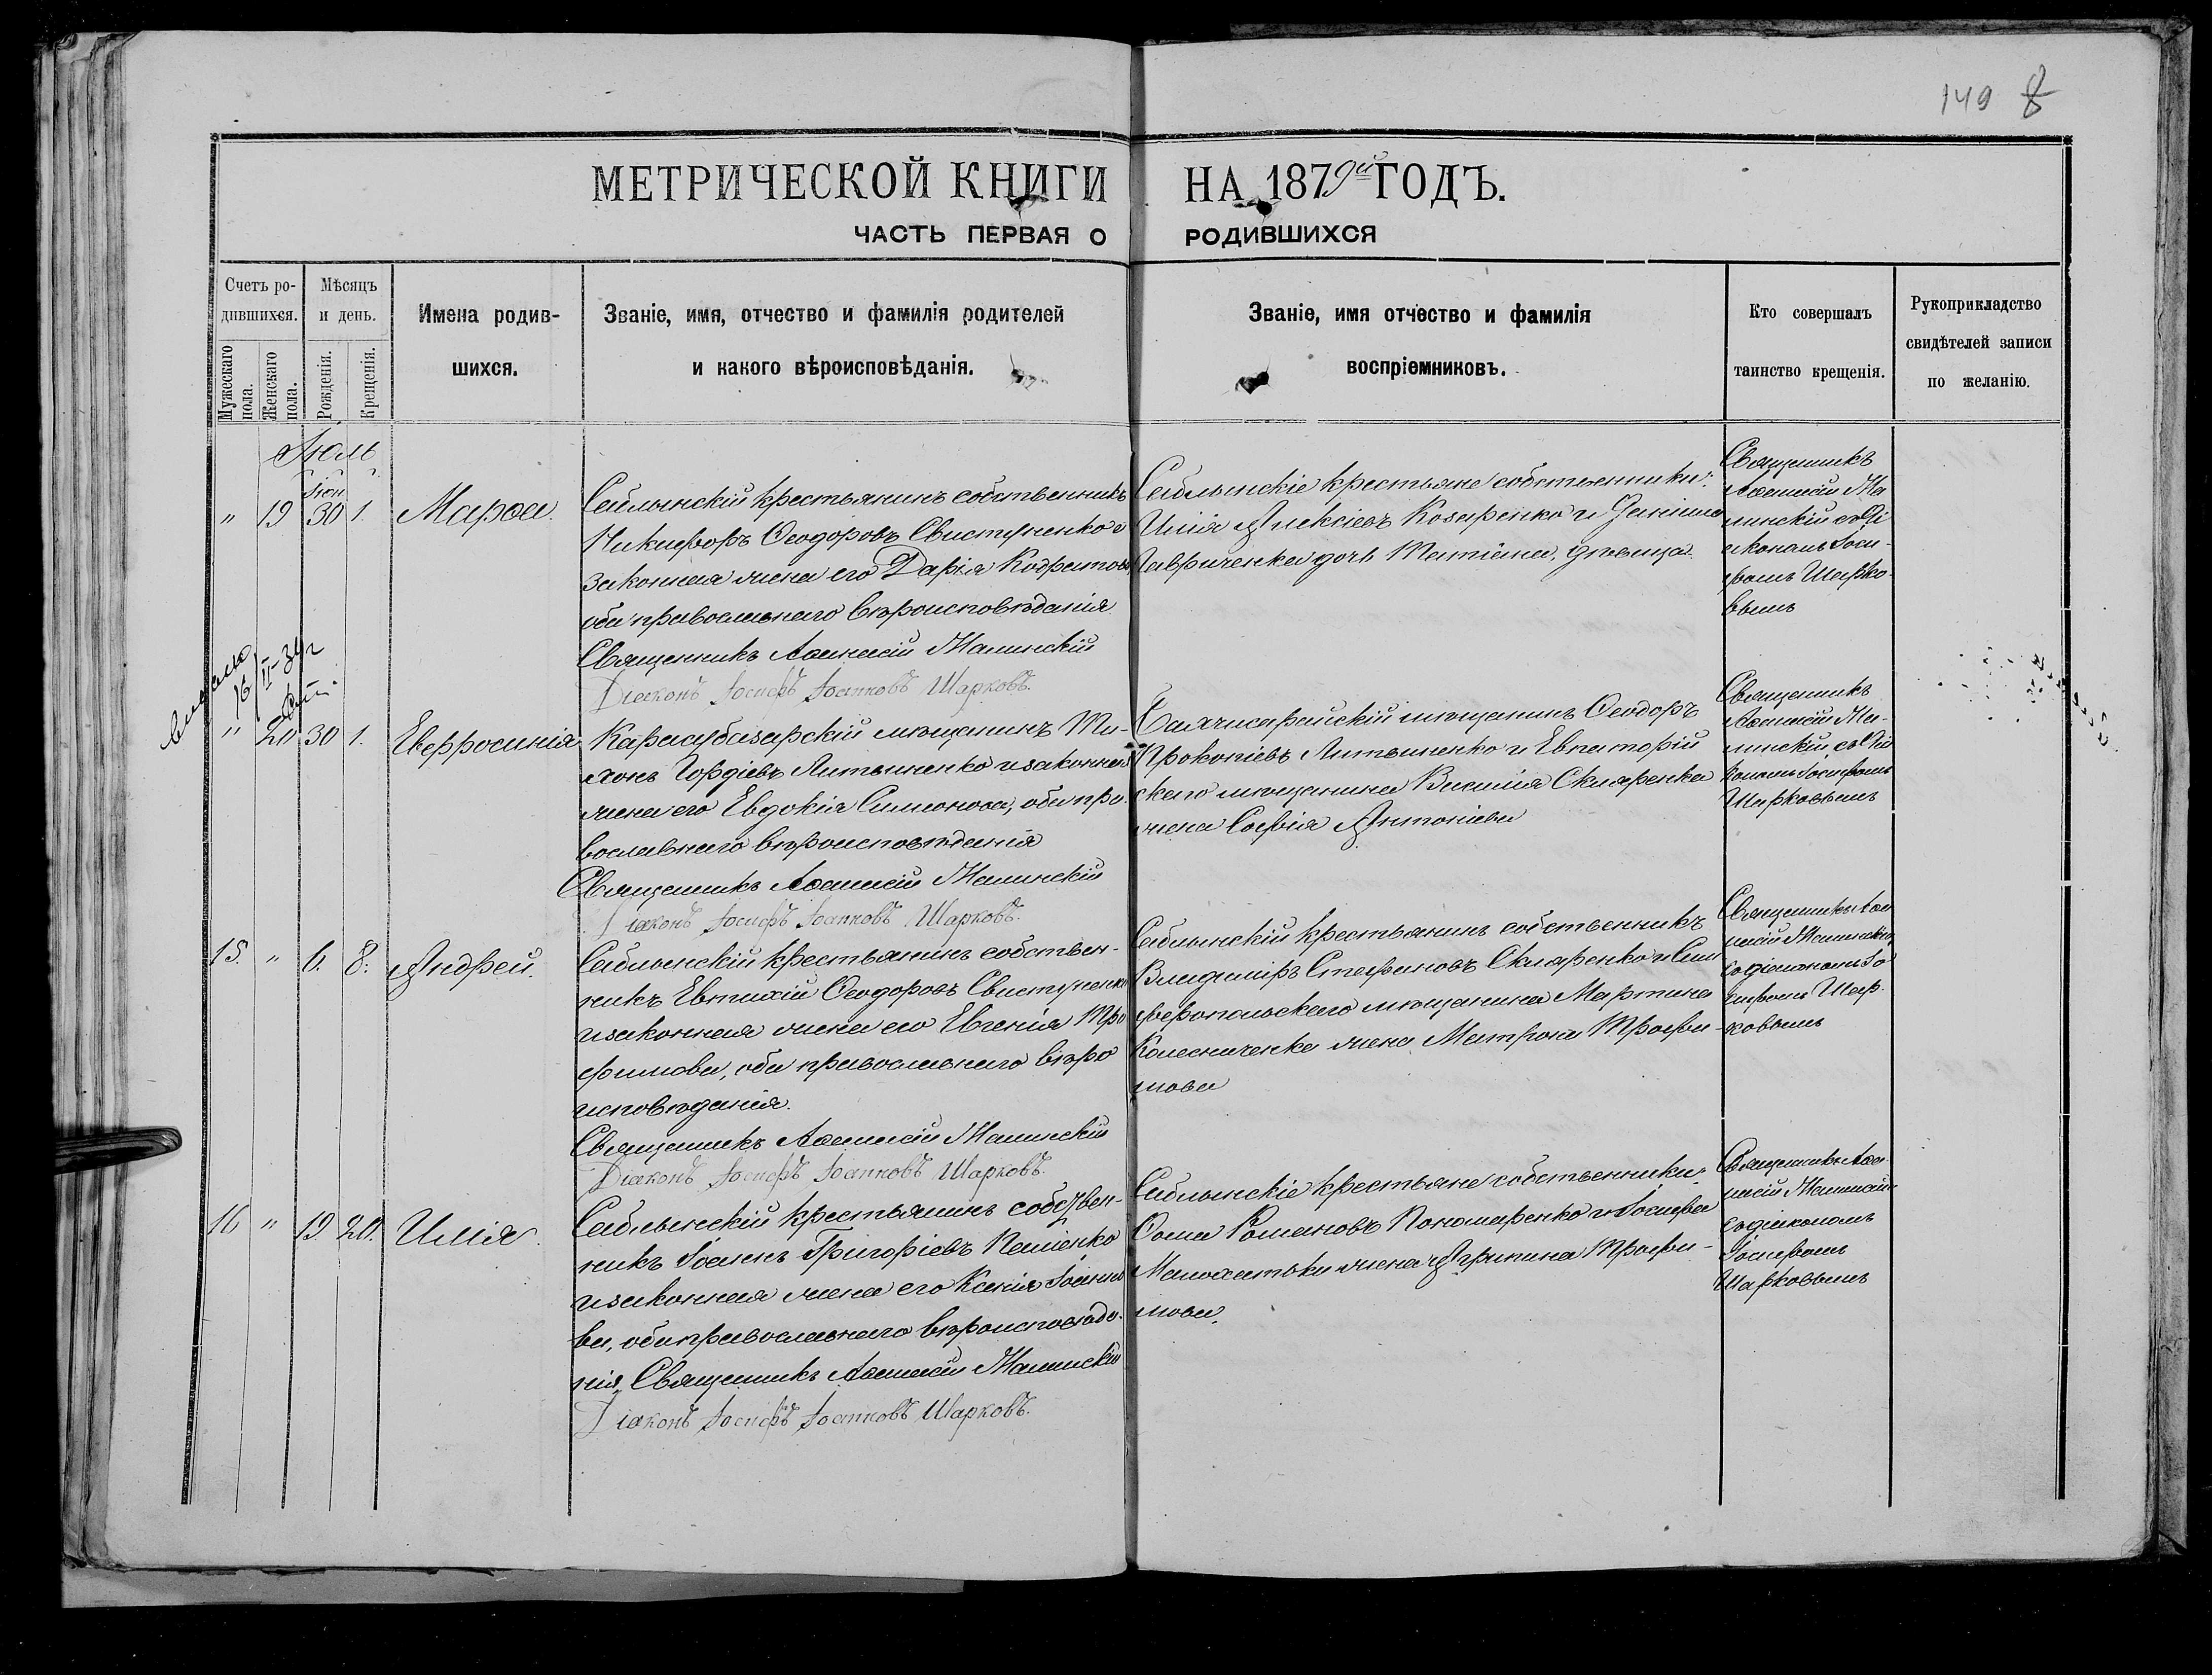 149 8
МЕТРИЧЕСКОЙ КНИГИ НА 1879й ГОДЪ.
ЧАСТЬ ПЕРВАЯ О РОДИВШИХСЯ
Счетъ ро-
дившихся.
Мужескаго пола.
Женскаго пола.
Мѣсяцъ
и день.
Рожденія.
Крещенія.
Имена родив-
шихся.
Званіе, имя, отчество и фамилія родителей
и какого вѣроисповѣданія.
Званіе, имя отчество и фамилія
воспріемниковъ.
Кто совершалъ
таинство крещенія.
Рукоприкладство
свидѣтелей записи
по желанію.
Іюль
Іюн
" 19 30 1. Марѳа.
Саблынскій крестьянинъ собственникъ
Никифоръ Ѳеодоровъ Свистуненко и
законная жена его Дарія Кодратова
оба православнаго вѣроисповѣданія
Священникъ Аѳанасій Малинскій
Діаконъ Іосифъ Іоанновъ Шарковъ.
Саблынскіе крестьяне собственники:
Илія Алексіевъ Козыренко и
Гавриченка дочь Татіана, дѣвица.
Священникъ
Аѳанасій Ма
линскій съ Ді
акономъ Іоси-
фомъ Шарко-
вымъ
16/II-34 г
" 20 30 1. Евфросинія
Карасубазарскій мѣщанинъ Ти-
хонъ Гордіевъ Литвиненко и законная
жена его Евдокія Симонова, оба пра-
вославнаго вѣроисповѣданія
Священникъ Аѳанасій Малинскій
Діаконъ Іосифъ Іоанновъ Шарковъ.
Бахчисарайскій мѣщанинъ Ѳеодоръ
Прокопіевъ Литвиненко и Евпаторій
скаго мѣщанина Василія Скляренка
жена Софія Антоніева
Священникъ
Аѳанасій Ма-
линскій съ Діа
кономъ Іосифомъ
Шарковымъ
15. " 6. 8. Андрей.
Саблынскій крестьянинъ собствен-
никъ Евтихій Ѳеодоровъ Свистуненко
и законная жена его Евгенія Тро
фимова, оба православнаго вѣро
исповѣданія.
Священникъ Аѳанасій Малинскій
Діаконъ Іосифъ Іоанновъ Шарковъ.
Саблынскій крестьянинъ собственникъ
Владиміръ Стефановъ Скляренко и Сим
феропольскаго мѣщанина Мартина
Колесниченка жена Матрона Трофи-
мова
Священникъ Аѳа
насій Малинскій
съ діакономъ Іо
сифомъ Шар-
ковымъ
16 " 19 20. Илія.
Саблынскій крестьянинъ собствен-
никъ Іоаннъ Григоріевъ Паліенко
и законная жена его Ксенія Іоанно
ва, оба православнаго вѣроисповѣда-
нія, Священникъ Аѳанасій Малинскій
Діаконъ Іосифъ Іоанновъ Шарковъ.
Саблынскіе крестьяне собственники:
Ѳома Романовъ Пономаренко и Іосифа
Малохатьки жена Агрипина Трофи-
мова.
Священникъ Аѳа-
насій Малинскій
съ діакономъ
Іосифомъ
Шарковымъ